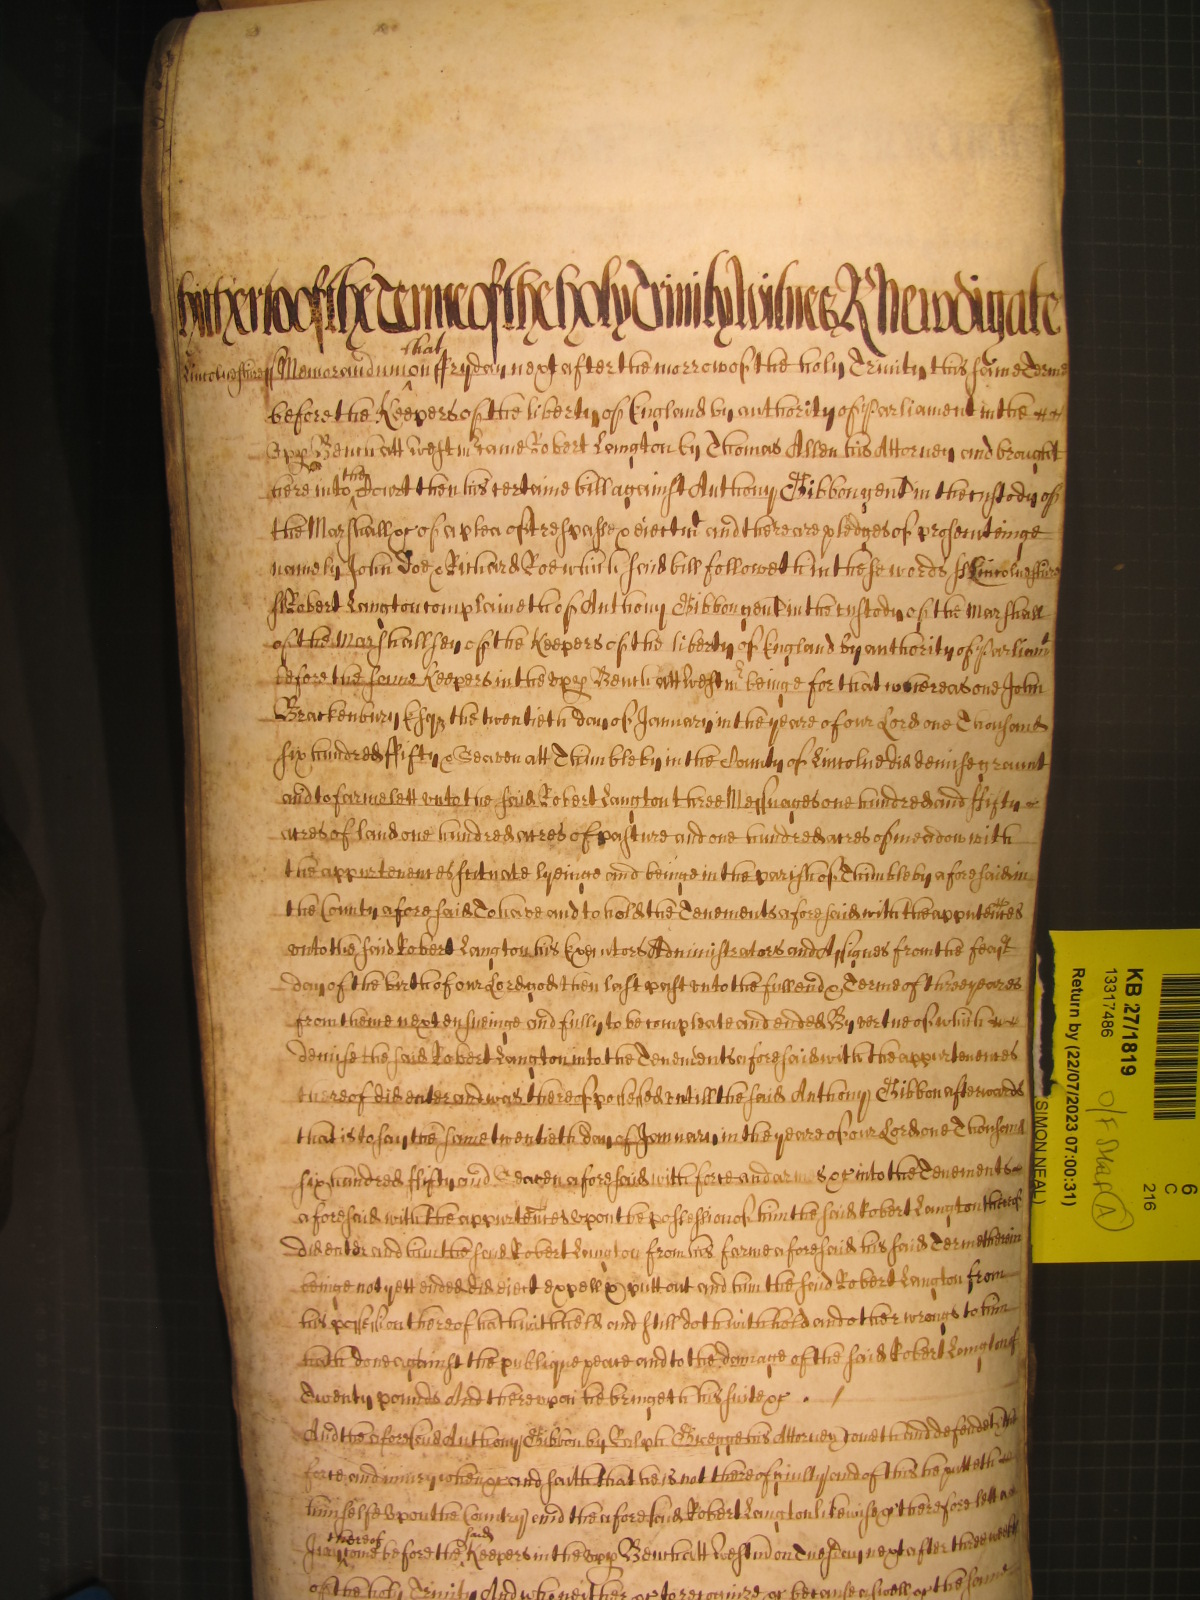 hitherto of the Terme of the holy Trinity Witnes R Newdigate
Lincolneshire ss Memorandum that on ffryday next after the morrow of the holy Trinity this same Terme
before the Keepers of the liberty of England by authority of Parliament in the
upp Bench att Westmr came Robert Langton by Thomas Allen his Attorney and brought
here into the Court then his certaine bill against Anthony Gibbon gent in the custody of
the Marshall &c of a plea of trespasse & eiectmt and there are pledges of prosecuteinge
namely John Doe & Richard Roe which said bill followeth in these words ss Lincolneshire
ss Robert Langton complaineth of Anthony Gibbon gent in the custody of the Marshall
of the Marshallsey of the Keepers of the liberty of England by authority of Parliamt
before the same Keepers in the upp Bench att Westmr beinge for that whereas one John
Brackenbury Esqr the twentieth day of January in the yeare of our Lord one Thousand
six hundred ffifty & Seaven att Thimbleby in the County of Lincolne did demise graunt
and to farme lett unto the said Robert Langton three Messuages one hundred and ffifty
acres of land one hundred acres of pasture and one hundred acres of meadow with
the appurtenences scituate lyeinge and beinge in the parish of Thimbleby aforesaid in
the County aforesaid To have and to hold the Tenements aforesaid with the appurtences
unto the said Robert Langton his Executors Administrators and Assignes from the feast
day of the birth of our Lord god then last past unto the full end & Terme of three yeares
from thence next ensueinge and fully to be compleate and ended By vertue of which
demise the said Robert Langton into the Tenements aforesaid with the appurtenences
thereof did enter and was thereof possessed untill the said Anthony Gibbon afterwards
that is to say the same twentieth day of January in the yeare of our Lord one Thousand
six hundred ffifty and Seaven aforesaid with force and armes &c into the Tenements
aforesaid with the appurtences upon the possession of him the said Robert Langton thereof
did enter and him the said Robert Langton from his farme aforesaid his said Terme therein
beinge not yett ended did eiect expell & putt out and him the said Robert Langton from
his possession thereof hath withheld and still doth withhold and other wrongs to him
hath done against the publique peace and to the damage of the said Robert Langton of
Twenty pounds And thereupon he bringeth his suite &c
And the aforesaid Anthony Gibbon by Ralph his Attorney cometh and defendeth the
force and iniury when &c and saith that he is not thereof guilty and of this he putteth
himselfe upon the Country and the aforesaid Robert Langton likewise &c therefore lett a
Jury thereof come before the said Keepers in the upp Bench att Westm on Tuesday next after three weekes
of the holy Trinity And who neither &c to recognize &c because aswell &c the same
KB 27/1819
13317486
Return by (22/07/2023 07:00:31)
(SIMON NEAL)
6
C
216
A